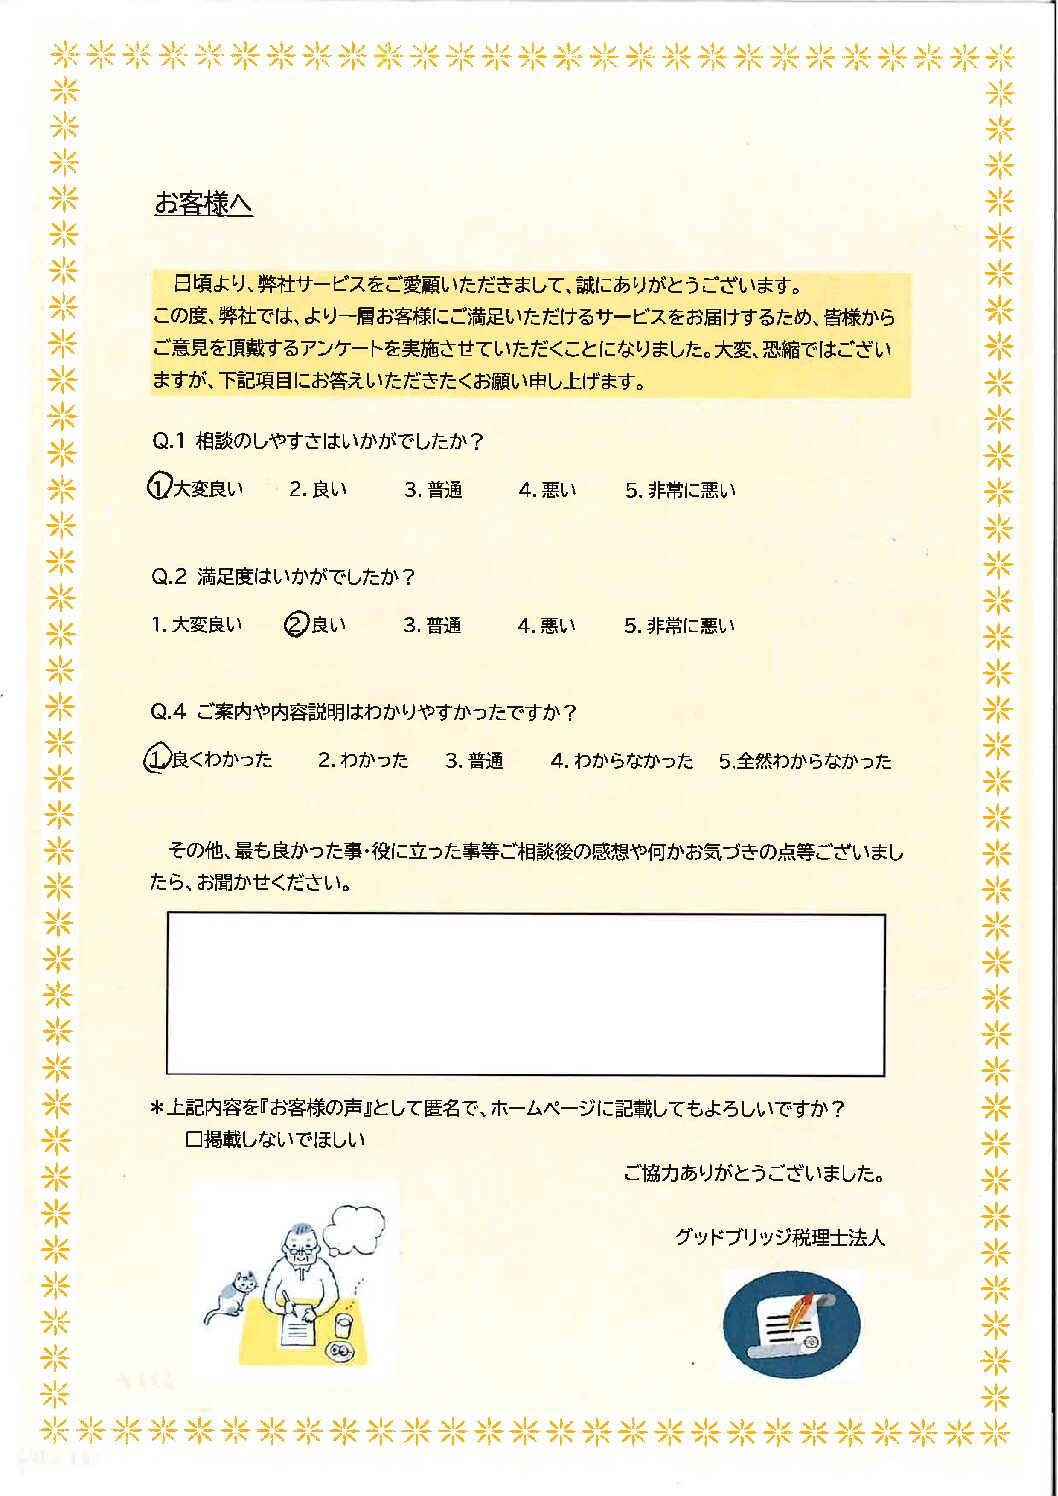 お客様へ
日頃より、弊社サービスをご愛顧いただきまして、誠にありがとうございます。
この度、弊社では、より一層お客様にご満足いただけるサービスをお届けするため、皆様から
ご意見を頂戴するアンケートを実施させていただくことになりました。大変、恐縮ではござい
ますが、下記項目にお答えいただきたくお願い申し上げます。
Q.1 相談のしやすさはいかがでしたか？
①大変良い 2. 良い 3. 普通 4. 悪い 5. 非常に悪い
Q.2 満足度はいかがでしたか？
1. 大変良い ②良い 3. 普通 4. 悪い 5. 非常に悪い
Q.4 ご案内や内容説明はわかりやすかったですか？
①良くわかった 2. わかった 3. 普通 4. わからなかった 5.全然わからなかった
その他、最も良かった事・役に立った事等ご相談後の感想や何かお気づきの点等ございまし
たら、お聞かせください。
＊上記内容を『お客様の声』として匿名で、ホームページに記載してもよろしいですか？
□掲載しないでほしい
ご協力ありがとうございました。
グッドブリッジ税理士法人